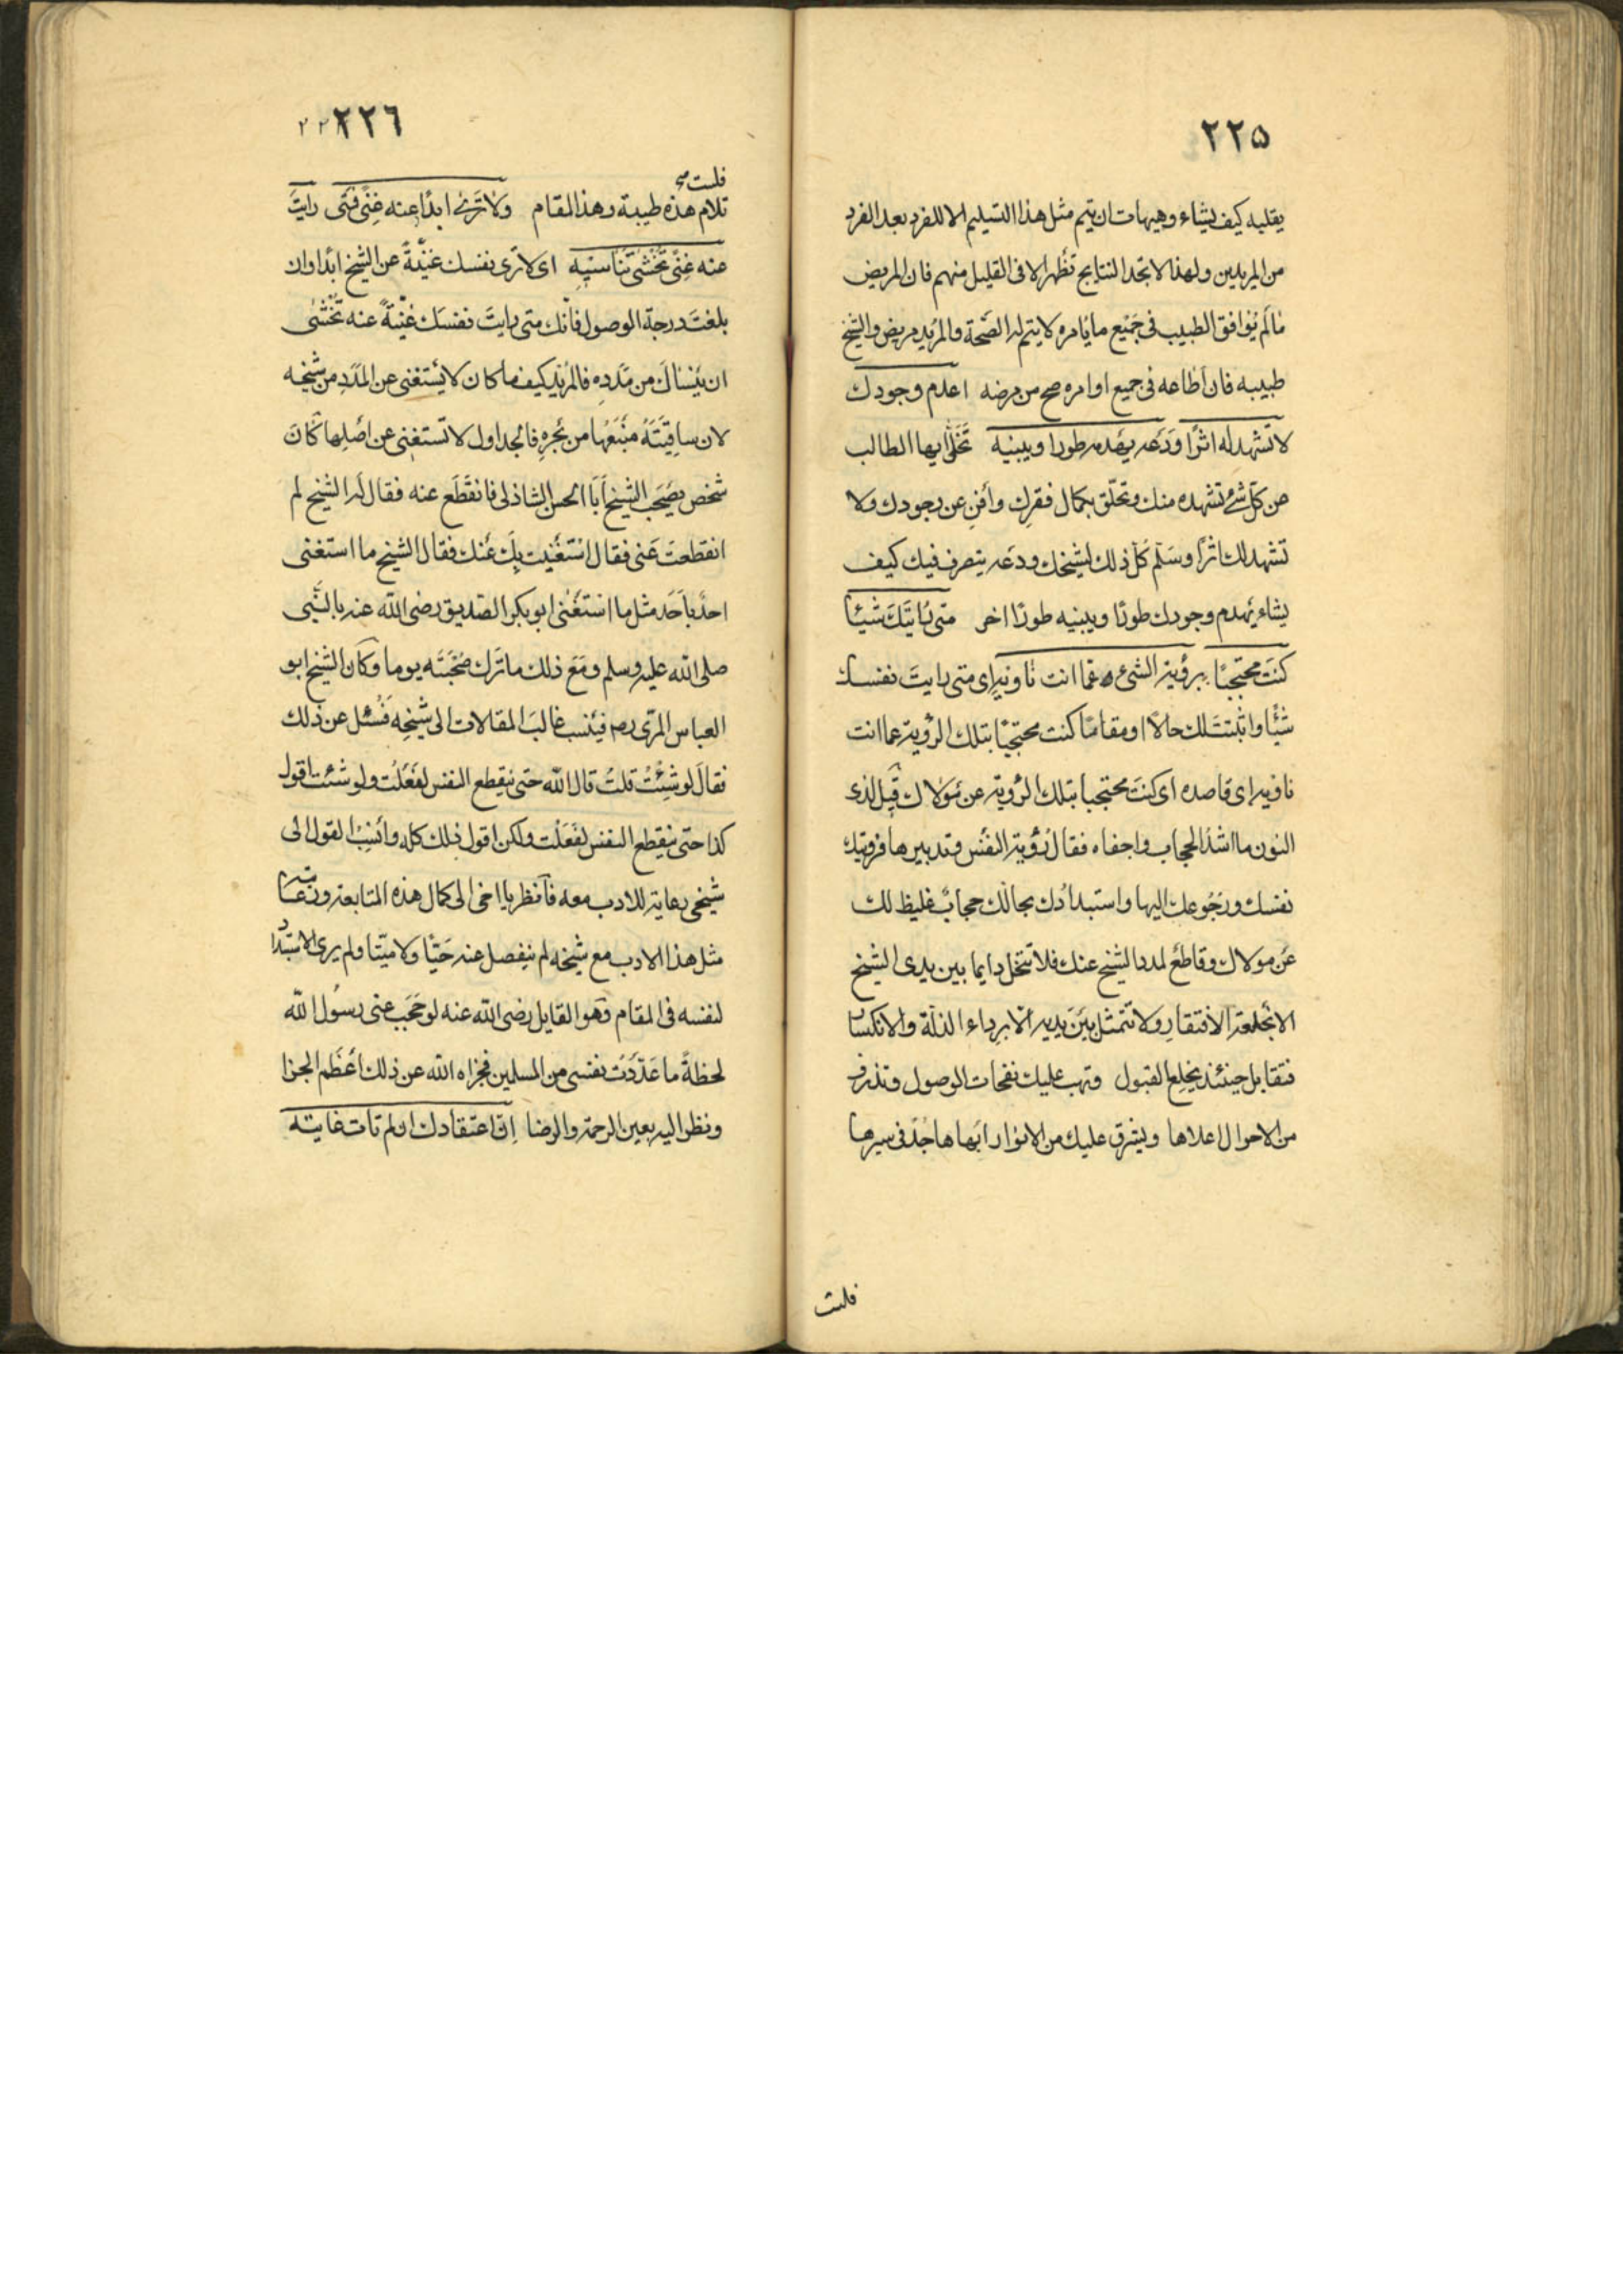 ٢٢٥
يقلبه كيف يشاء وهيهات ان يتم مثل هذا التسليم الا للفرد بعد الفرد
من المريدين ولهذا لا تجد النتايج تظهر الا فى القليل منهم فان المريض
مالم يُوافق الطبيب فى جَمْيع مايأمره لا يتم له الصّحة والمريد مريض والشيخ
طبيبه فان اطاعه فى جميع اوامره صح من مرضه اعدم وجودك
لا تشهد له اثرًا ودَعه يهدمه طورا ويبنيه تَخَلَّ ايها الطالب
من كل شئ تشهده منك وتخلّق بكمال فقرك وأفنِ عن وجودك ولا
تشهد لك اثرًا وسَلّم كلّ ذلك لشيخك ودَعه يتصرف فيك كيف
يشاء يهدم وجودك طورًا ويبنيه طورًا اخر متى رُايتَكَ شَيْئا
كنتَ محتجبًا برؤية الشئ عمّا انت ناويه اى متى رايتَ نفسك
شَيْئًا واثبتت لك حالًا او مقامًا كنت محتجبًا بتلك الرؤية عما انت
ناويه اى قاصده اى كنتَ محتجبا بتلك الرُّوية عن مَوَلاك قيل لذى
النون ما اشدّ الحجاب واخفاه فقال رُؤية النفْس وتدبيرها فرويتك
نفسك ورجُوعك اليها واستبدادُك بحالك حجابٌ غليظ لك
عَن مولاك وقاطعٌ لمدد الشيخ عنك فلا تتخل دايما بين يدى الشيخ
الا بخلعة الافتقار ولا تتمثل بَيْنَ يديه الّا برداء الذلّة والانكسار
فتقابل حينئذ بخلع القبول وتهب عليك نفحات الوصول وتذوق
من الاحوال اعلاها ويشرق عليك من الانوار ابهاها جُدّ فى سيرها
فلست
٢٢٦
فلست
تلام هذه طيبة وهذا المقام ولا تَرَنْ ابدًا عنه غِنًى فمتى رايتَ
عنه غِنًى تَخْشَى تَنَاسْيِه اى لا ترى نفسك غَنيّةً عن الشيخ ابدًا وان
بلغتَ درجة الوصول فأنك متى رايتَ نفسَك غَنيّةً عنه تخْشَى
ان يَنْسَاكَ من مَدَدِهِ فالمريد كيف ما كان لا يَسْتغنى عن المدَدِ من شيخه
لان ساقِيَتَهُ مَنْبَعُها من بَحْرِهِ فالجداول لا تستغنى عن اصْلِها كانَ
شخص يصْحَب الشيخ أبَا الحسن الشاذلى فانقَطَع عنه فقال له الشيخ لم
انقطعتَ عَنى فقال اسْتَغْنيت بِكَ عَنك فقال الشيخ ما استغنى
احدٌ بِأحَد مثل ما استَغْنى ابو بكر الصّديق رضى الله عنه بالنّبى
صلى الله عليه وسلم ومَعَ ذلك ماتَرَك صُحْبَتَه يوما وكان الشيخ ابو
العباس المرسى ره فينسب غالبَ المقالات الى شَيْخِه فَسُئل عن ذلك
فقالَ لو شِئْتُ قلتُ قال الله حتى ينقطع النفس لفَعَلْت ولو شئت اقول
كذا حتى ينقطع النفس لفَعَلْت ولكن اقول ذلك كله وانسِبُ القول الى
شيخى رعاية للادب معه فأنظر يا اخى الى كمال هذه المتابعة ورعاية
مثل هذا الادب مع شيخه لم ينفصل عنه حَيًّا ولا ميّتا ولم يرى الاستبداد
لنفسه فى المقام وَهو القايل رضى الله عنه لو حُجَب عنى رسُول الله
لحظةً ما عَدّدْتُ نفسى من المسلمين فجزاه الله عن ذلك اعْظَم الجزا
ونظر اليه بعين الرحمة والرضا اِنّ اعتقادك ان لم تات غايته